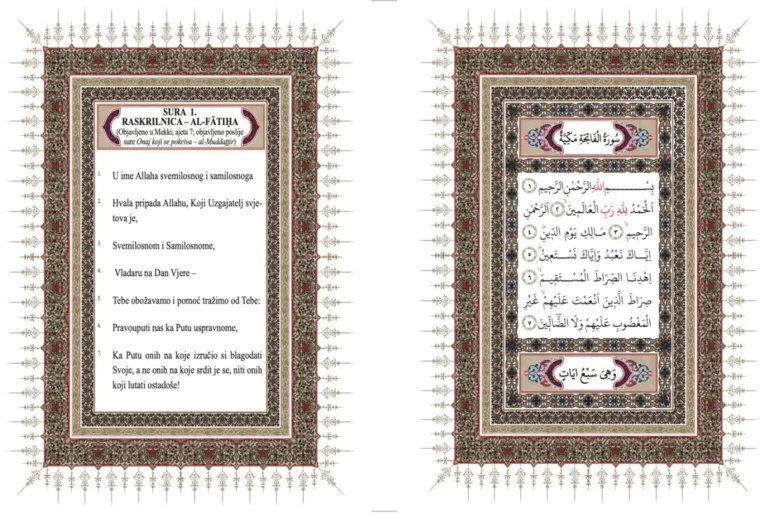 SURA 1.
RASKRILNICA – AL-FĀTIḤA
(Objavljeno u Mekki; ajeta 7; objavljeno poslije
sure Onaj koji se pokriva – al-Muddaṯṯir)
1. U ime Allaha svemilosnog i samilosnoga
2. Hvala pripada Allahu, Koji Uzgajatelj svje-
tova je,
3. Svemilosnom i Samilosnome,
4. Vladaru na Dan Vjere –
5. Tebe obožavamo i pomoć tražimo od Tebe:
6. Pravouputi nas ka Putu uspravnome,
7. Ka Putu onih na koje izručio si blagodati
Svoje, a ne onih na koje srdit je se, niti onih
koji lutati ostadoše!
سُورَةُ الْفَاتِحَةِ مَكِّيَّةٌ
بِسْــــــمِ اللهِ الرَّحْمٰنِ الرَّحِيمِ ﴿١﴾
اَلْحَمْدُ لِلّٰهِ رَبِّ الْعَالَمِينَۙ ﴿٢﴾ اَلرَّحْمٰنِ
الرَّحِيمِۙ ﴿٣﴾ مَالِكِ يَوْمِ الدِّينِۜ ﴿٤﴾
اِيَّاكَ نَعْبُدُ وَاِيَّاكَ نَسْتَعِينُۜ ﴿٥﴾
اِهْدِنَا الصِّرَاطَ الْمُسْتَقِيمَۙ ﴿٦﴾
صِرَاطَ الَّذِينَ اَنْعَمْتَ عَلَيْهِمْ غَيْرِ
الْمَغْضُوبِ عَلَيْهِمْ وَلَا الضَّٓالِّينَ ﴿٧﴾
وَهِيَ سَبْعُ اٰيَاتٍ